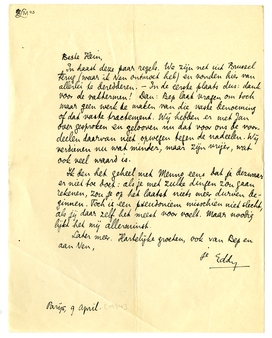 Beste Hein,
In haast deze paar regels. We zijn net uit Brussel
terug (waar ik Van ontmoet heb) en vonden hier van
alles te beredderen. — In de eerste plaats dus: dank
voor de vaktermen! Dan: Bep laat vragen om toch
maar geen werk te maken van die vaste benoeming
of dat vaste tractement. Wij hebben er met Jan
over gesproken en gelooven nu dat voor ons de voor-
deelen daarvan niet opwegen tegen de nadeelen. Wij
verdienen nu wat minder, maar zijn vrijer, wat
ook veel waard is.
Ik ben het geheel met Menno eens dat je bezwaar
er niet toe doet: als je met zulke dingen zou gaan
rekenen, zou je op het laatst niets meer durven be-
ginnen. Toch is een pseudoniem misschien niet slecht,
als jij daar zelf het meest voor voelt. Maar noodig
lijkt het mij allerminst.
Later meer. Hartelijke groeten, ook van Bep en
aan
je Eddy
Parijs, 9 April.